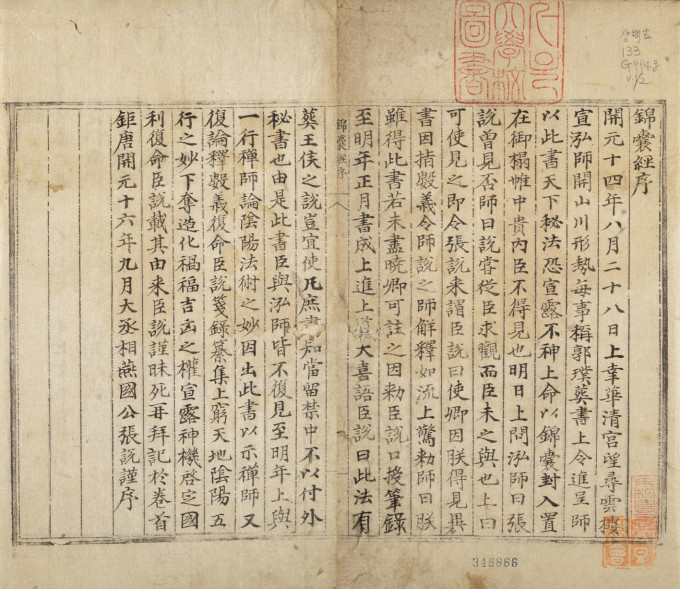 錦囊經序
開元十四年八月二十八日上幸華清宮望尋雲樓
宣泓師問山川形勢每事稱郭璞葬書上令進呈師
以此書天下秘法恐宣露不神上命以錦囊封入置
在御榻帷中貴內臣不得見也明日上問泓師曰張
說曾見否師曰說嘗從臣求觀而臣未之與也上曰
可使見之即令張說來謂臣說曰使卿因朕得見異
書因指數義令師說之師解釋如流上驚勑師曰朕
雖得此書若未盡曉卿可註之因勑臣說口授筆錄
至明年正月書成上進上大喜語臣說曰此法有
錦囊經序
一
葬王侯之說豈宜使凡庶知當留禁中不以付外
秘書也由是此書臣與泓師皆不復見至明年上與
一行禪師論陰陽法術之妙因出此書以示禪師又
復論釋數義復命臣說箋錄纂集上窮天地陰陽五
行之妙下奪造化禍福吉凶之權宣露神機啓定國
利復命臣說載其由來臣說謹昧死再拜記於卷首
鉅唐開元十六年九月大丞相燕國公張說謹序
圖書
133
348866